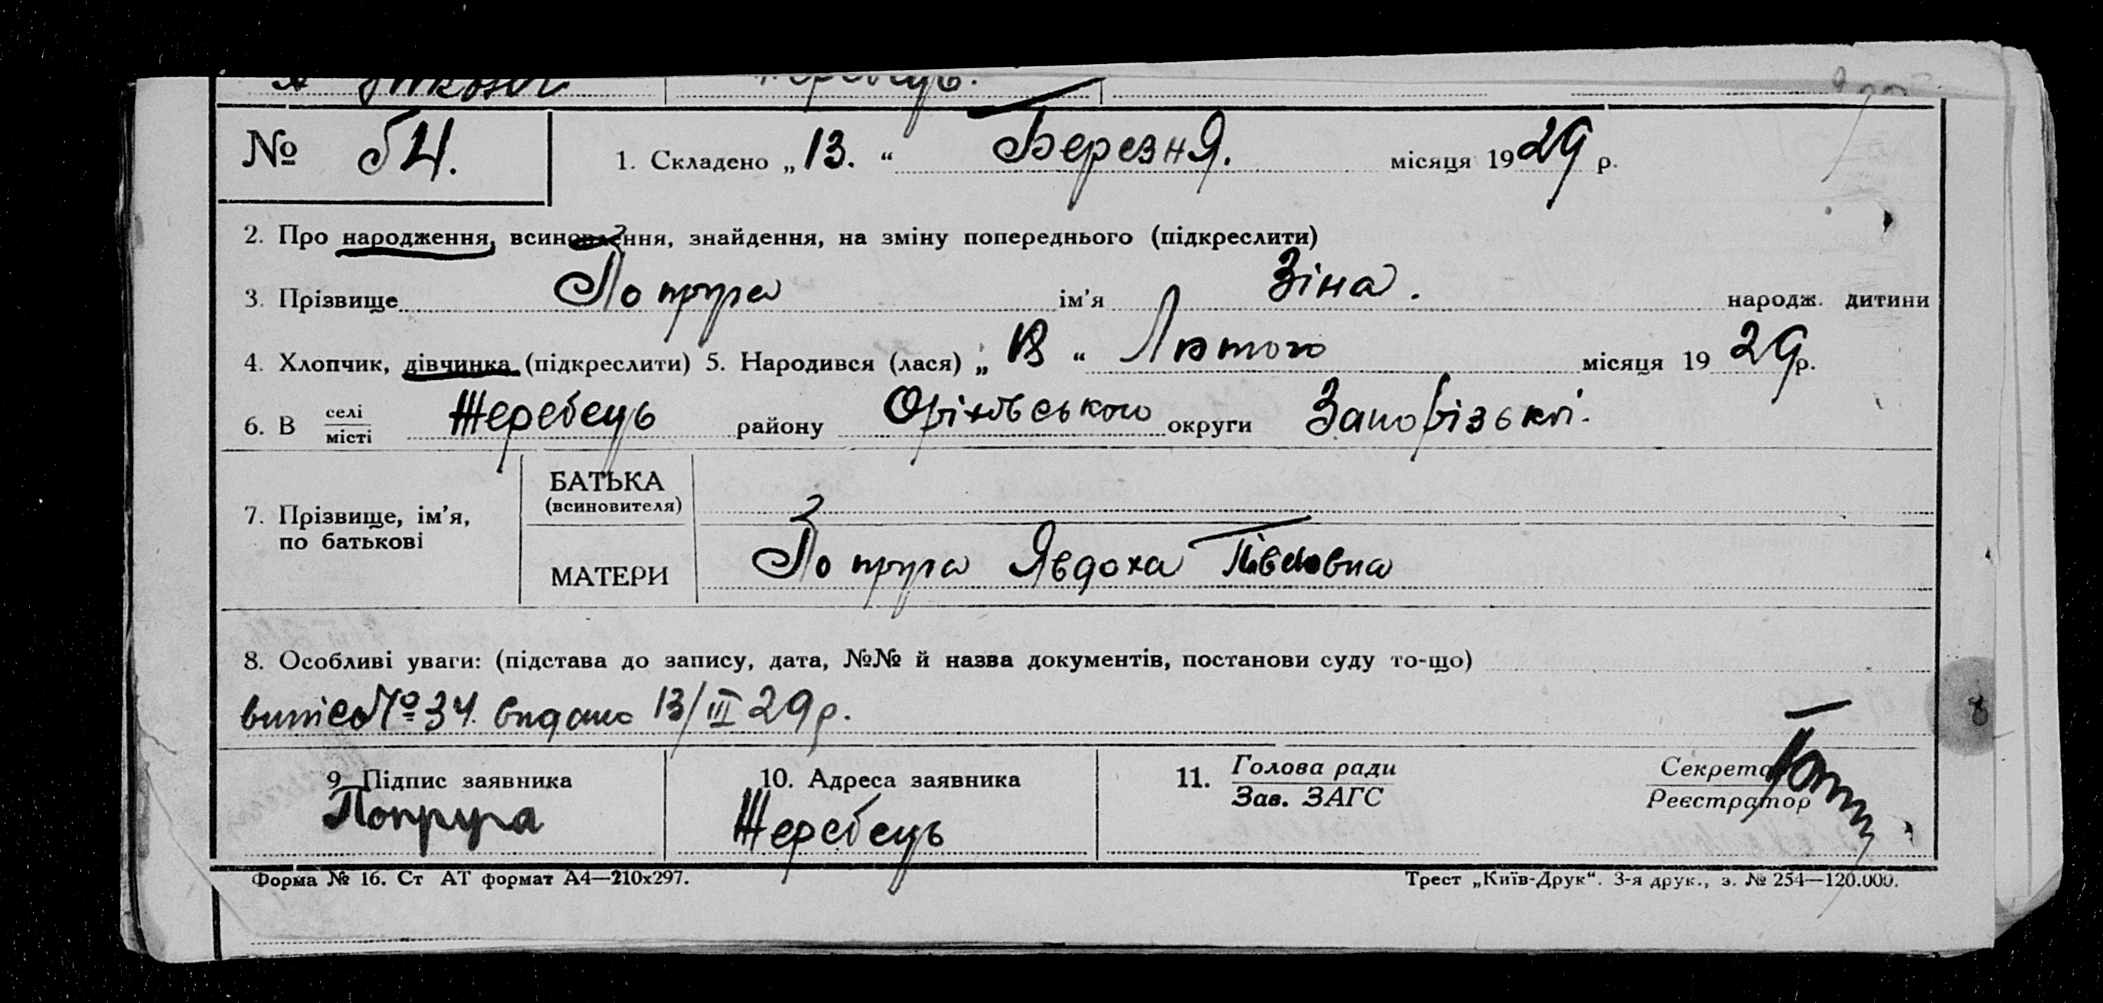 Жеребець.
№ 54.
1. Складено „ 13. “ Березня. місяця 1929 р.
2. Про народження, всиновлення, знайдення, на зміну попереднього (підкреслити)
3. Прізвище Попруга ім'я Зіна. народж. дитини
4. Хлопчик, дівчинка (підкреслити) 5. Народився (лася) „ “ Лютого місяця 19 29 р.
6. В селі/місті Жеребець району Оріхівського округи Запорізької.
БАТЬКА
(всиновителя)
7. Прізвище, ім'я,
по батькові
МАТЕРИ Попруга Явдоха
8. Особливі уваги: (підстава до запису, дата, №№ й назва документів, постанови суду то-що)
витяг № 34. видано 13/III 29 р.
9. Підпис заявника 10. Адреса заявника 11. Голова ради Секретар
Зав. ЗАГС Реєстратор
Попруга Жеребець
Форма № 16. Ст АТ формат А4—210х297. Трест „Київ-Друк“. 3-я друк., з. № 254—120.000.